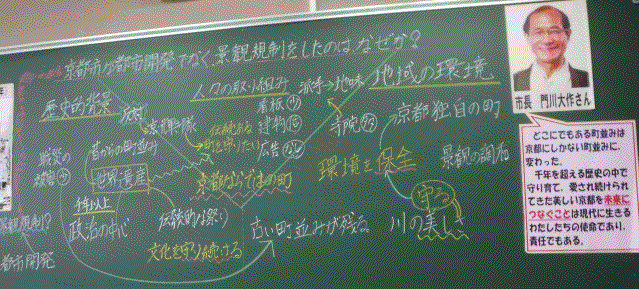 京都市が都市開発でなく景観規制をしたのはなぜか?
歴史的背景
人々の取り組み
派手→地味
地域の環境
看板
建物
広告
寺院
京都独自の町
伝統ある
町を守りたい
昔からの町並み
戦災の
被害
世界遺産
京都ならではの町
環境を保全
景観の調和
政治の中心
文化を守り続ける
古い町並みが残る
守る
川の美しさ
都市開発
市長 門川大作さん
どこにでもある町並みは
京都にしかない町並みに、
変わった。
千年を超える歴史の中で
守り育て、愛され続けられ
てきた美しい京都を未来に
つなぐことは現代に生きる
わたしたちの使命であり、
責任でもある。